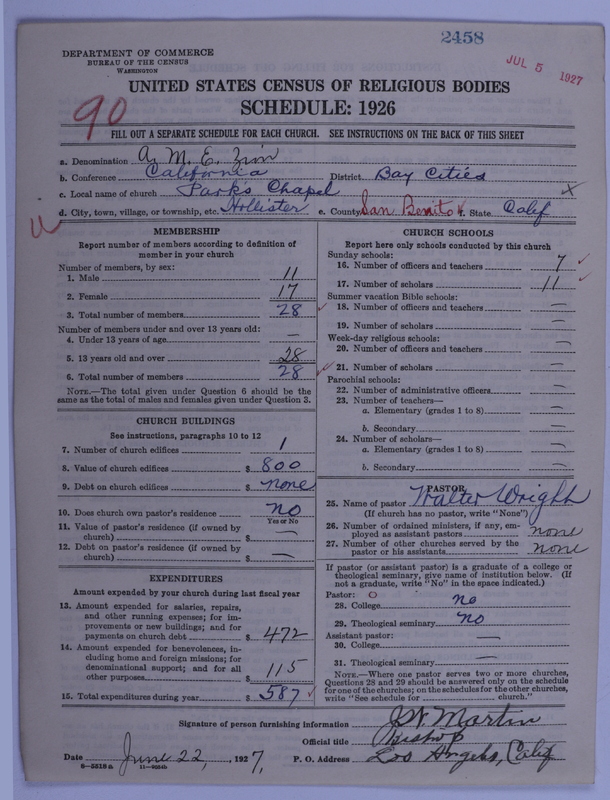 2458
JUL 5 1927
DEPARTMENT OF COMMERCE
BUREAU OF THE CENSUS
WASHINGTON
UNITED STATES CENSUS OF RELIGIOUS BODIES
SCHEDULE: 1926
90
FILL OUT A SEPARATE SCHEDULE FOR EACH CHURCH. SEE INSTRUCTIONS ON THE BACK OF THIS SHEET
a. Denomination A. M. E. Zion
b. Conference California District Bay Cities
c. Local name of church Parks Chapel
d. City, town, village, or township, etc. Hollister e. County San Benito f. State Calif
MEMBERSHIP
Report number of members according to definition of
member in your church
Number of members, by sex:
1. Male 11
2. Female 17
3. Total number of members 28
Number of members under and over 13 years old:
4. Under 13 years of age —
5. 13 years old and over 28
6. Total number of members 28
NOTE.—The total given under Question 6 should be
same as the total of males and females given under Question 3.
CHURCH BUILDINGS
See instructions, paragraphs 10 to 12
7. Number of church edifices 1
8. Value of church edifices $ 800
9. Debt on church edifices $ none
10. Does church own pastor's residence no
Yes or No
11. Value of pastor's residence (if owned by
church) $ —
12. Debt on pastor's residence (if owned by
church) $ —
EXPENDITURES
Amount expended by your church during last fiscal year
13. Amount expended for salaries, repairs,
and other running expenses; for im-
provements or new buildings; and for
payments on church debt $ 472
14. Amount expended for benevolences, in-
cluding home and foreign missions; for
denominational support; and for all
other purposes $ 115
15. Total expenditures during year $ 587
CHURCH SCHOOLS
Report here only schools conducted by this church
Sunday schools:
16. Number of officers and teachers 7
17. Number of scholars 11
Summer vacation Bible schools:
18. Number of officers and teachers —
19. Number of scholars —
Week-day religious schools:
20. Number of officers and teachers —
21. Number of scholars —
Parochial schools:
22. Number of administrative officers —
23. Number of teachers—
a. Elementary (grades 1 to 8) —
b. Secondary —
24. Number of scholars—
a. Elementary (grades 1 to 8) —
b. Secondary —
PASTOR
25. Name of pastor Walter Wright
(If church has no pastor, write "None")
26. Number of ordained ministers, if any, em-
ployed as assistant pastors none
27. Number of other churches served by the
pastor or his assistants none
If pastor (or assistant pastor) is a graduate of a college or
theological seminary, give name of institution below. (If
not a graduate, write "No" in the space indicated.)
Pastor: O
28. College no
29. Theological seminary no
Assistant pastor:
30. College —
31. Theological seminary —
NOTE.—Where one pastor serves two or more churches,
Questions 28 and 29 should be answered only on the schedule
for one of the churches; on the schedules for the other churches,
write "See schedule for church."
Signature of person furnishing information J. W. Martin
Official title Bishop
Date June 22, 1927, P. O. Address Los Angeles, Calif
8—5518a 11—9034b